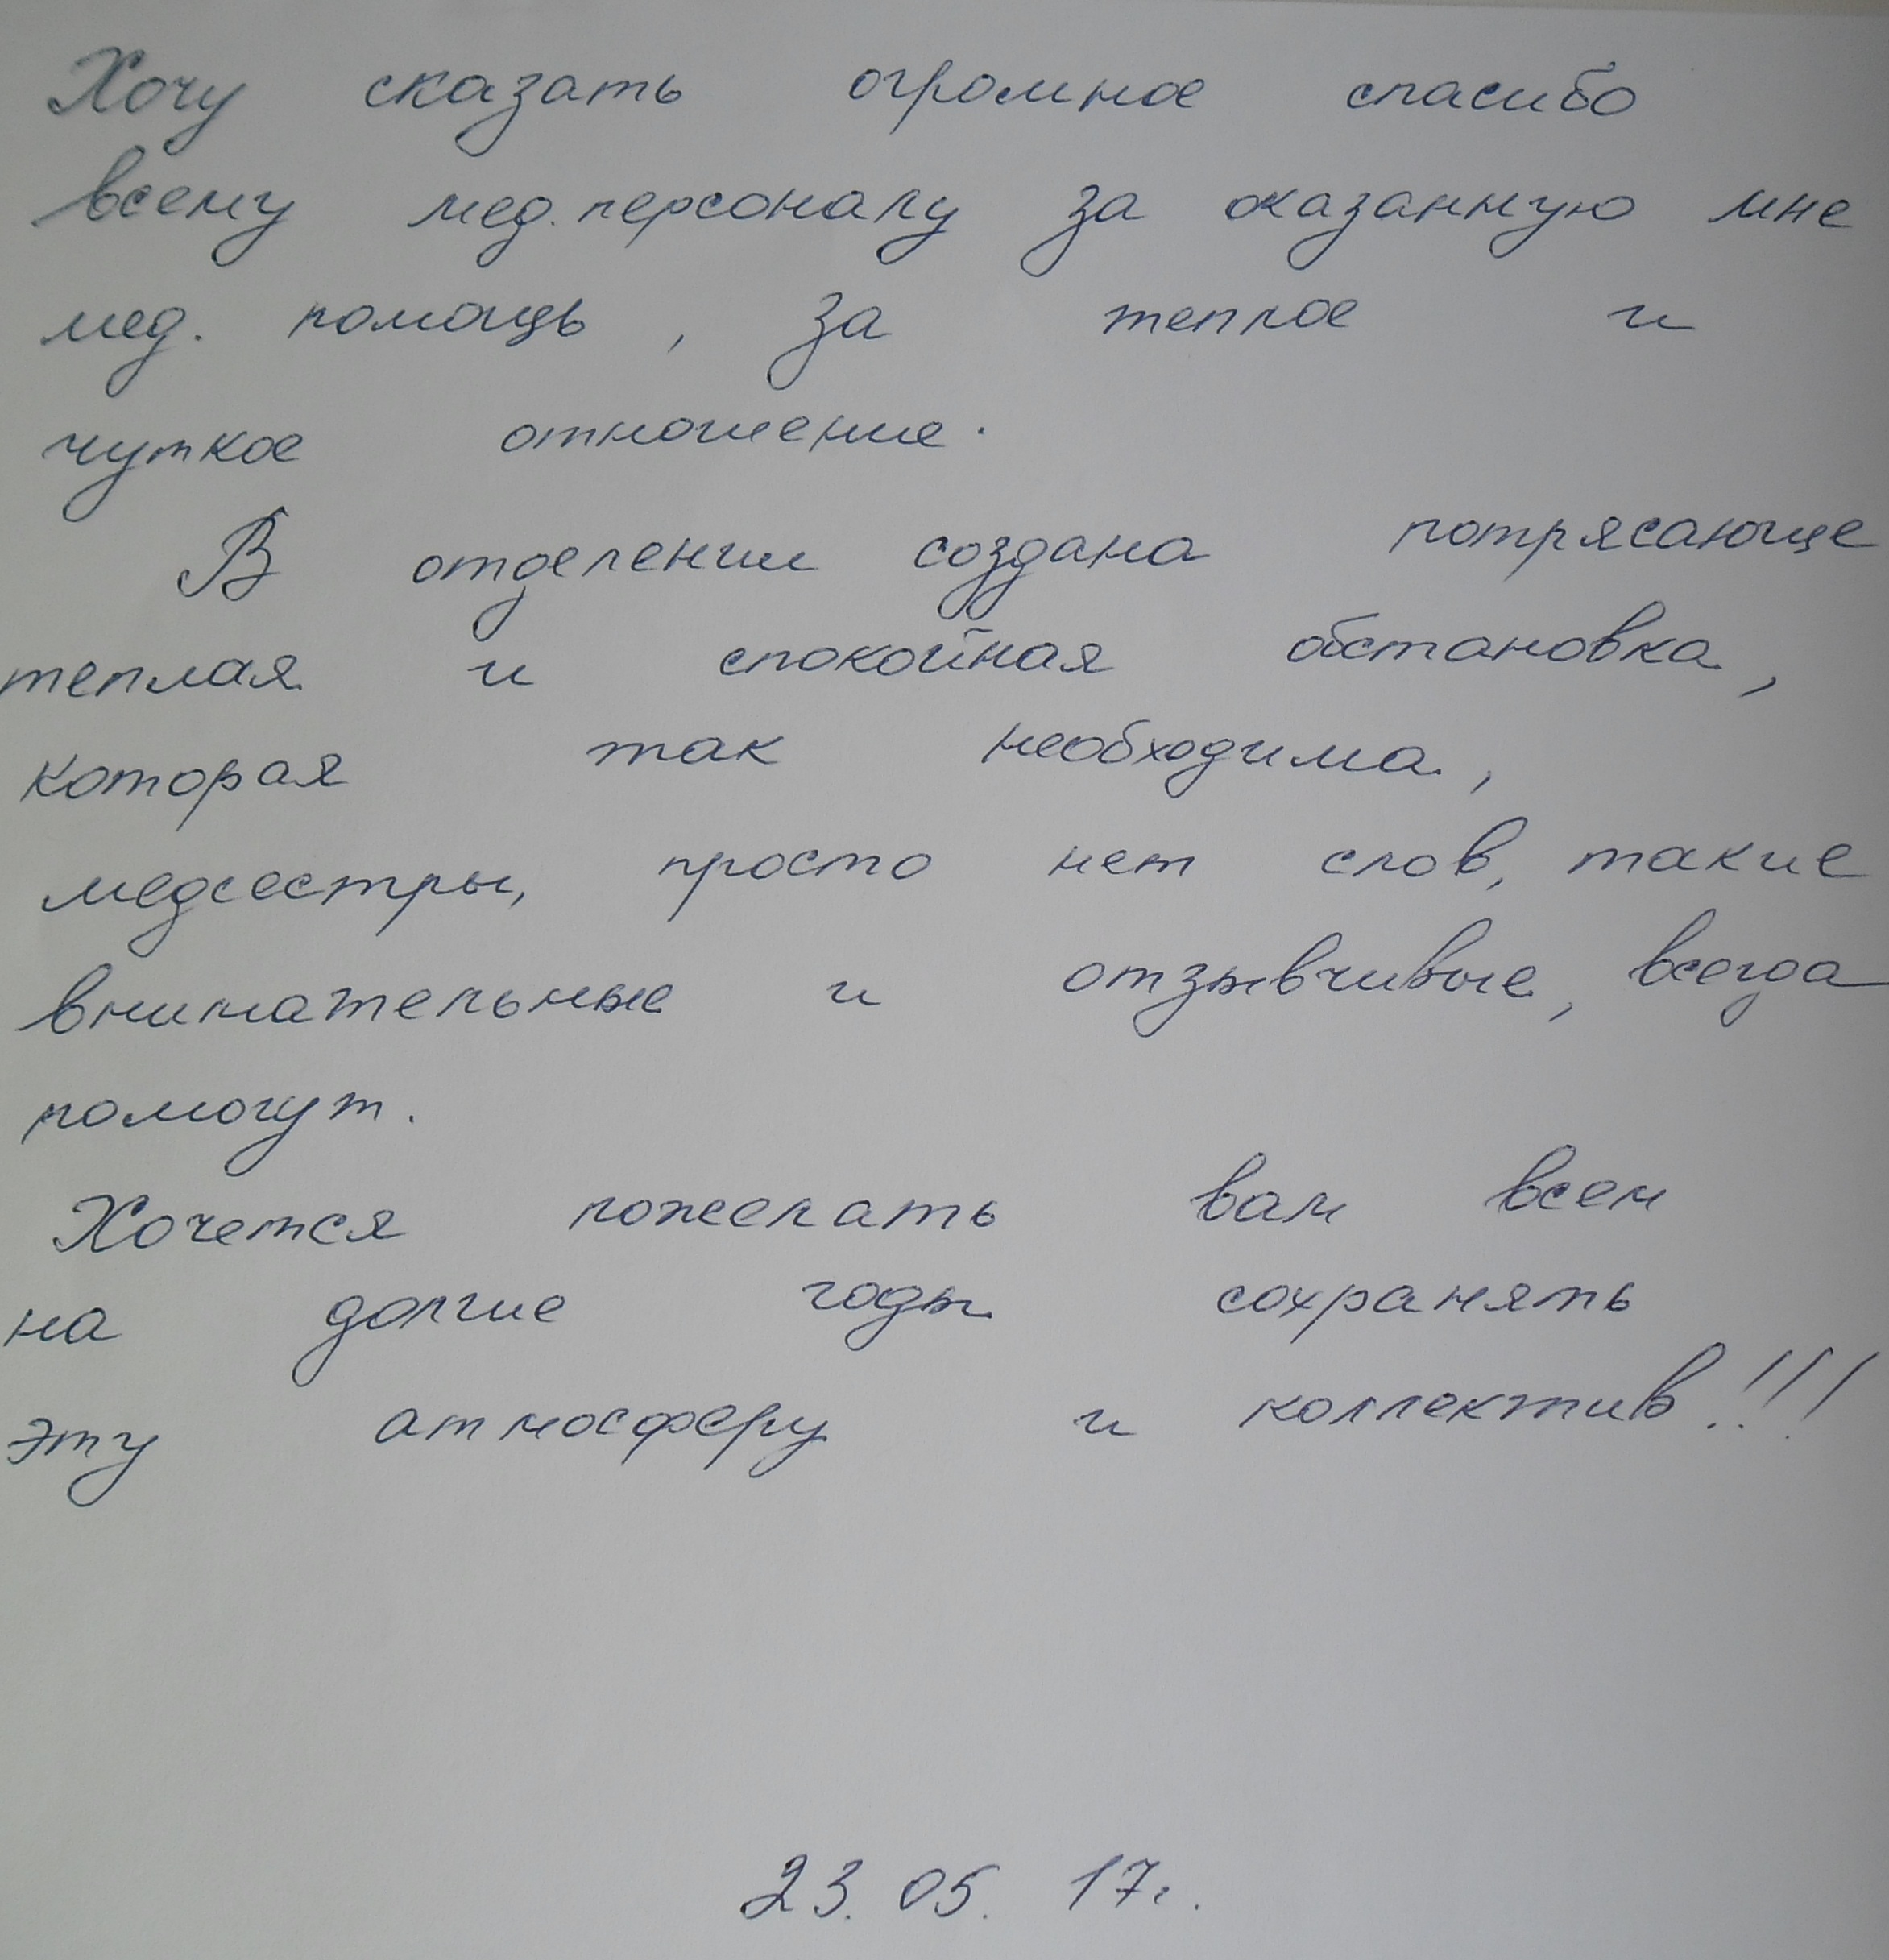 Хочу сказать огромное спасибо
всему мед. персоналу за оказанную мне
мед. помощь, за теплое и
чуткое отношение.
В отделении создана потрясающе
теплая и спокойная обстановка,
которая так необходима,
медсестры, просто нет слов, такие
внимательные и отзывчивые, всегда
помогут.
Хочется пожелать вам всем
на долгие годы сохранять
эту атмосферу и коллектив!!!
23.05.17г.